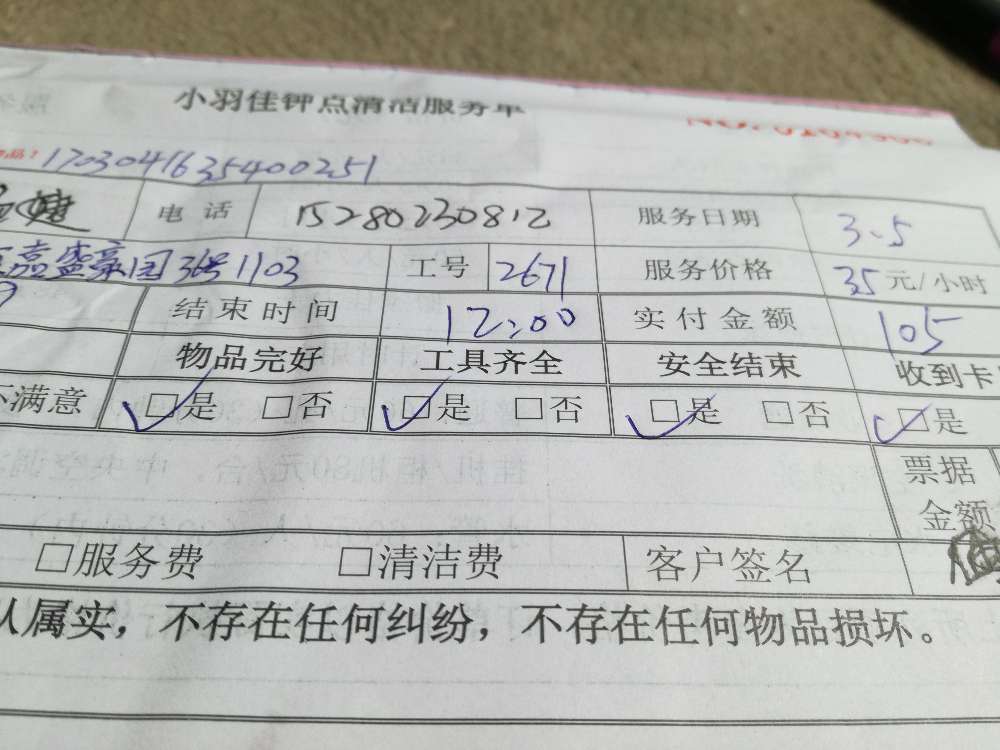 小羽佳钟点清洁服务单
1703041635400251
婕 电话 15280230812 服务日期 3.5
嘉盛豪园36号1103 工号 2671 服务价格 35元/小时
结束时间 12:00 实付金额 105
物品完好 工具齐全 安全结束 收到卡
不满意 □是 □否 □是 □否 □是 □否 □是
票据
金额
□服务费 □清洁费 客户签名
认属实，不存在任何纠纷，不存在任何物品损坏。